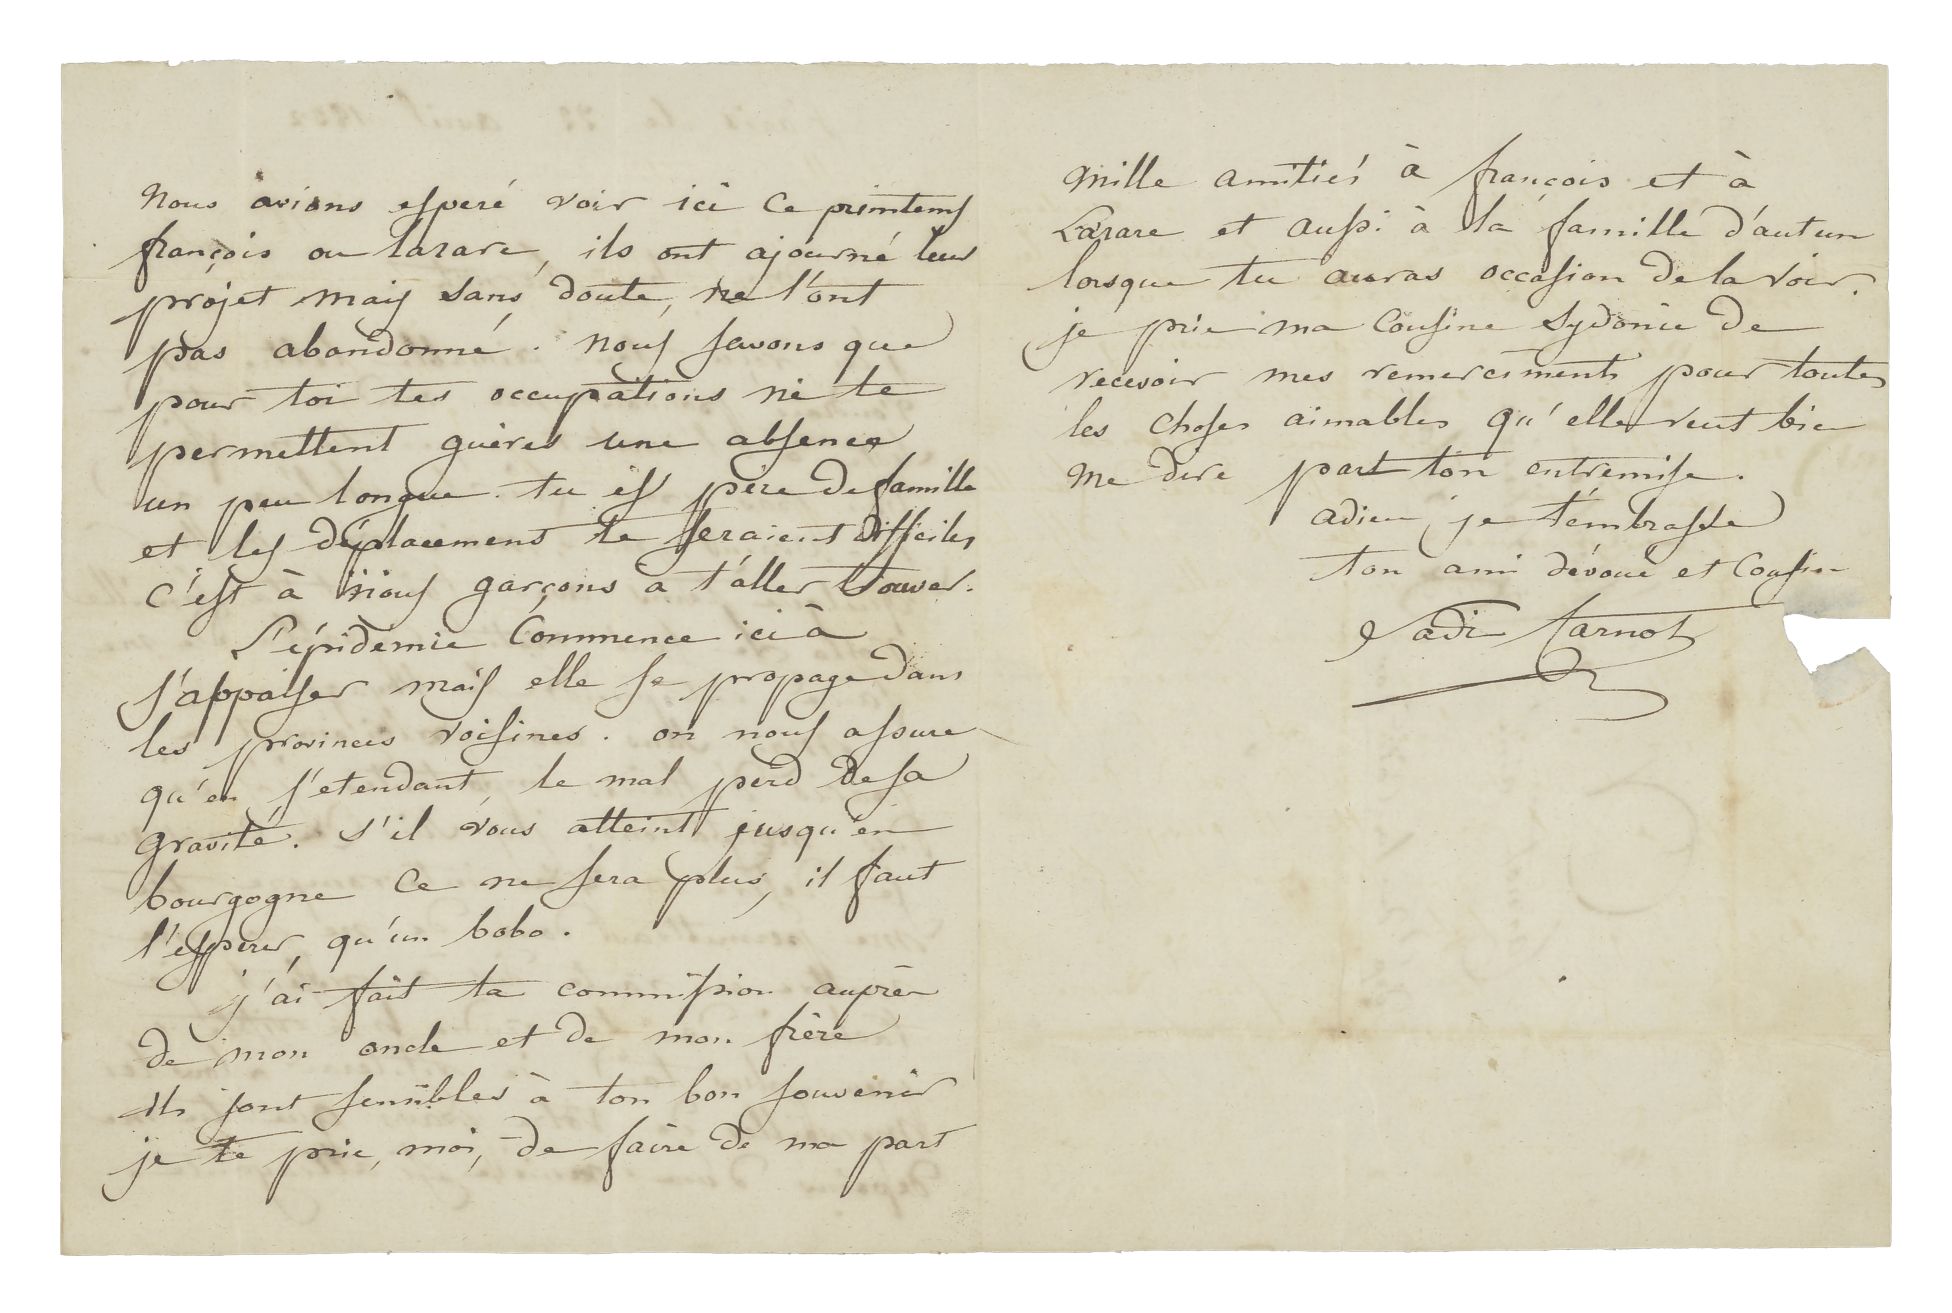 nous avions esperé voir ici ce printems
françois ou lazare, ils ont ajourné leur
projet mais sans doute, ne l'ont
pas abandonné. nous savons que
pour toi tes occupations ne te
permettent guères une absence
un peu longue. tu es père de famille
et les déplacemens te seraient difficiles
c'est à nous garçons a t'aller trouver.
L'épidemie commence ici à
s'appaiser mais elle se propage dans
les provinces voisines. on nous assure
qu'en s'etendant, le mal perd de sa
gravité. s'il vous atteint jusqu'en
bourgogne ce ne sera plus, il faut
l'esperer, qu'un bobo.
j'ai fait ta commission auprès
de mon oncle et de mon frère
ils sont sensibles à ton bon souvenir
je te prie, moi, de faire de ma part
mille amitiés à françois et à
Lazare et aussi à la famille d'autun
lorsque tu auras occasion de la voir.
je prie ma cousine Sydonie de
recevoir mes remerciments pour toutes
les choses aimables qu'elle veut bien
me dire part ton entremise.
adieu, je t'embrasse
ton ami dévoué et cousin
Sadi Carnot